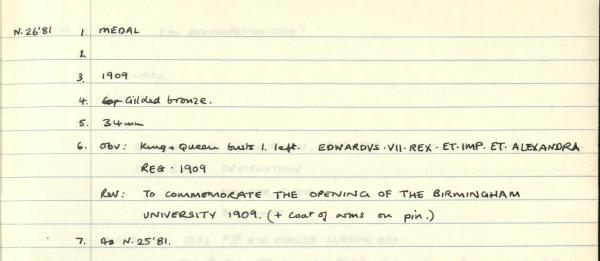 N.26'81 1 MEDAL
2
3. 1909
4. Gilded bronze.
5. 34mm
6. Obv: King + Queen busts l. left. EDWARDVS·VII·REX·ET·IMP·ET·ALEXANDRA·
REG·1909
Rev: TO COMMEMORATE THE OPENING OF THE BIRMINGHAM
UNIVERSITY 1909. (+ coat of arms on pin.)
7. As N.25'81.